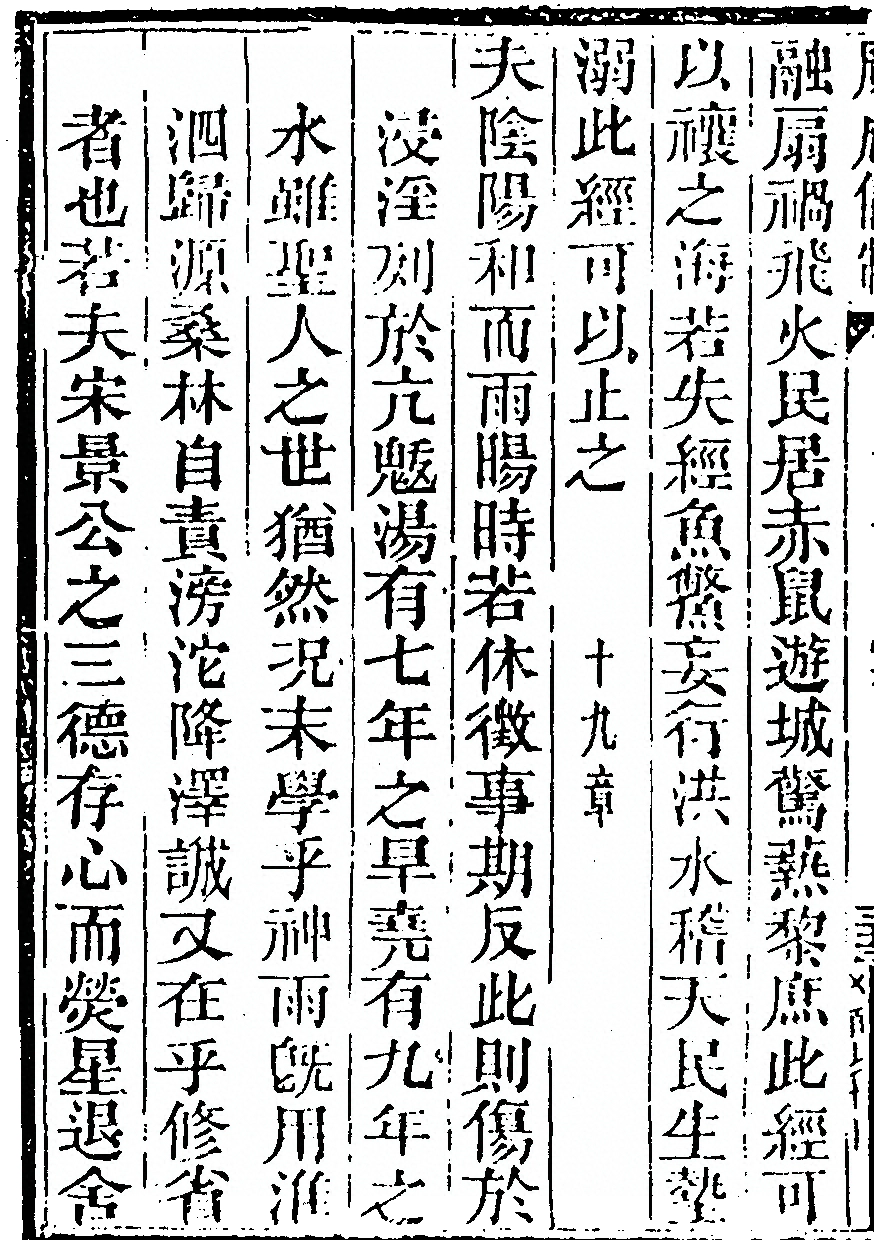 融扇禍飛火民居赤鼠遊城驚爇黎庶此經可
以禳之海若失經魚鱉妄行洪水稽天民生墊
溺此經可以止之　十九章
夫陰陽和而雨暘時若休徵事期反此則傷於
浸淫刻於亢魃湯有七年之旱堯有九年之
水雖聖人之世猶然況末學乎神雨旣用淮
泗歸源桑林自責滂沱降澤誠又在乎修省
者也若夫宋景公之三德存心而熒星退舍